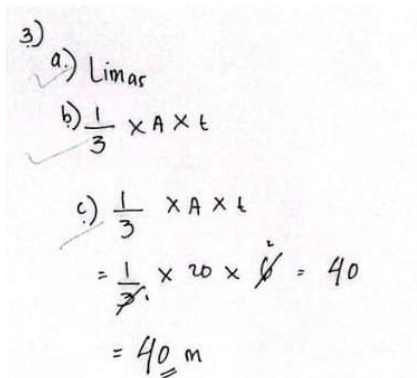 3.)
a.) Limas
b.) 1/3 × A × t
c.) 1/3 × A × t
= 1/3 × 20 × 6 2 = 40
= 40 m